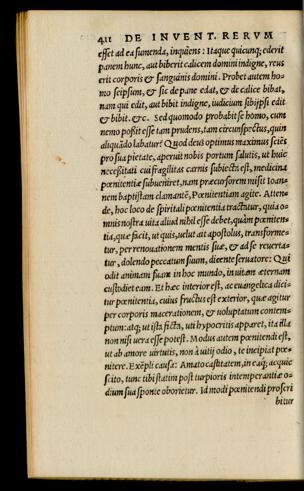 411 DE INVENT. RERVM
esset ad ea sumenda, inquiens: Itaque quicunq; ederit
panem hunc, aut biberit calicem domini indigne, reus
erit corporis & sanguinis domini. Probet autem ho-
mo seipsum, & sic de pane edat, & de calice bibat,
nam qui edit, aut bibit indigne, iudicium sibijpsi edit
& bibit. &c. Sed quomodo probabit se homo, cum
nemo possit esse tam prudens, tam circunspectus, quin
aliquãdo labatur? Quod deus optimus maximus sciẽs
pro sua pietate, aperuit nobis portum salutis, ut huic
necessitati cui fragilitas carnis subiecta est, medicina
pœnitentiæ subueniret, nam præcursorem misit Ioan-
nem baptistam clamantẽ, Pœnitentiam agite. Atten-
de, hoc loco de spiritali pœnitentia tractatur, quia o-
mnis nostra uita aliud nihil esse debet, quàm pœniten-
tia, quæ facit, ut quis, uelut ait apostolus, transforme-
tur, per renouationem mentis suæ, & ad se reuerta-
tur, dolendo peccatum suum, dicente seruatore: Qui
odit animam suam in hoc mundo, in uitam æternam
custodiet eam. Et hæc interior est, ac euangelica dici-
tur pœnitentia, cuius fructus est exterior, quæ agitur
per corporis macerationem, & uoluptatum contem-
ptum: atq; ut ista ficta, uti hypocritis apparet, ita illa
non nisi uera esse potest. Modus autem pœnitendi est,
ut ab amore uirtutis, non à uitij odio, te incipiat pœ-
nitere. Exẽpli causa: Amato castitatem, in eaq; acquie
scito, tunc tibi statim post turpioris intemperantiæ o-
dium sua sponte oborietur. Id modi pœnitendi proscri
bitur